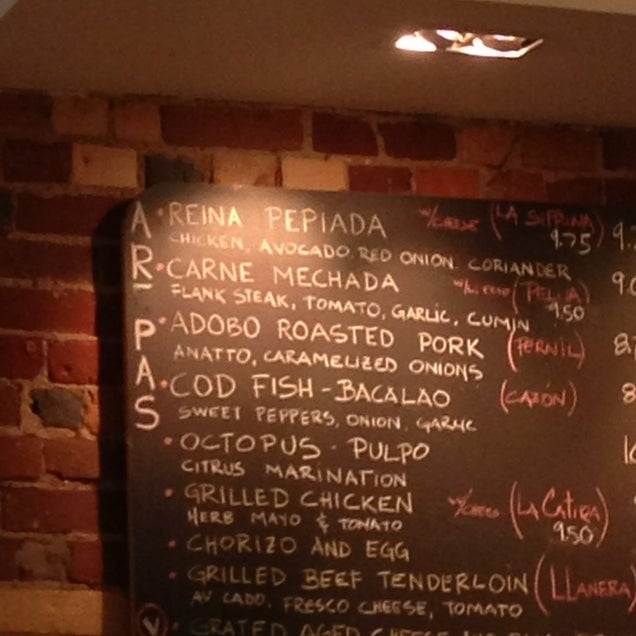 AREPAS
• REINA PEPIADA w/CHEESE (LA SIFRINA) 9.75
CHICKEN, AVOCADO, RED ONION, CORIANDER
• CARNE MECHADA (PELUA) 9.50
FLANK STEAK, TOMATO, GARLIC, CUMIN
• ADOBO ROASTED PORK (PERNIL)
ANATTO, CARAMELIZED ONIONS
• COD FISH - BACALAO (CAZÓN)
SWEET PEPPERS, ONION, GARLIC
• OCTOPUS - PULPO
CITRUS MARINATION
• GRILLED CHICKEN (LA CATIRA) 9.50
HERB MAYO & TOMATO
• CHORIZO AND EGG
• GRILLED BEEF TENDERLOIN (LLANERA)
AV CADO, FRESCO CHEESE, TOMATO
V • GRATED AGED CHEESE